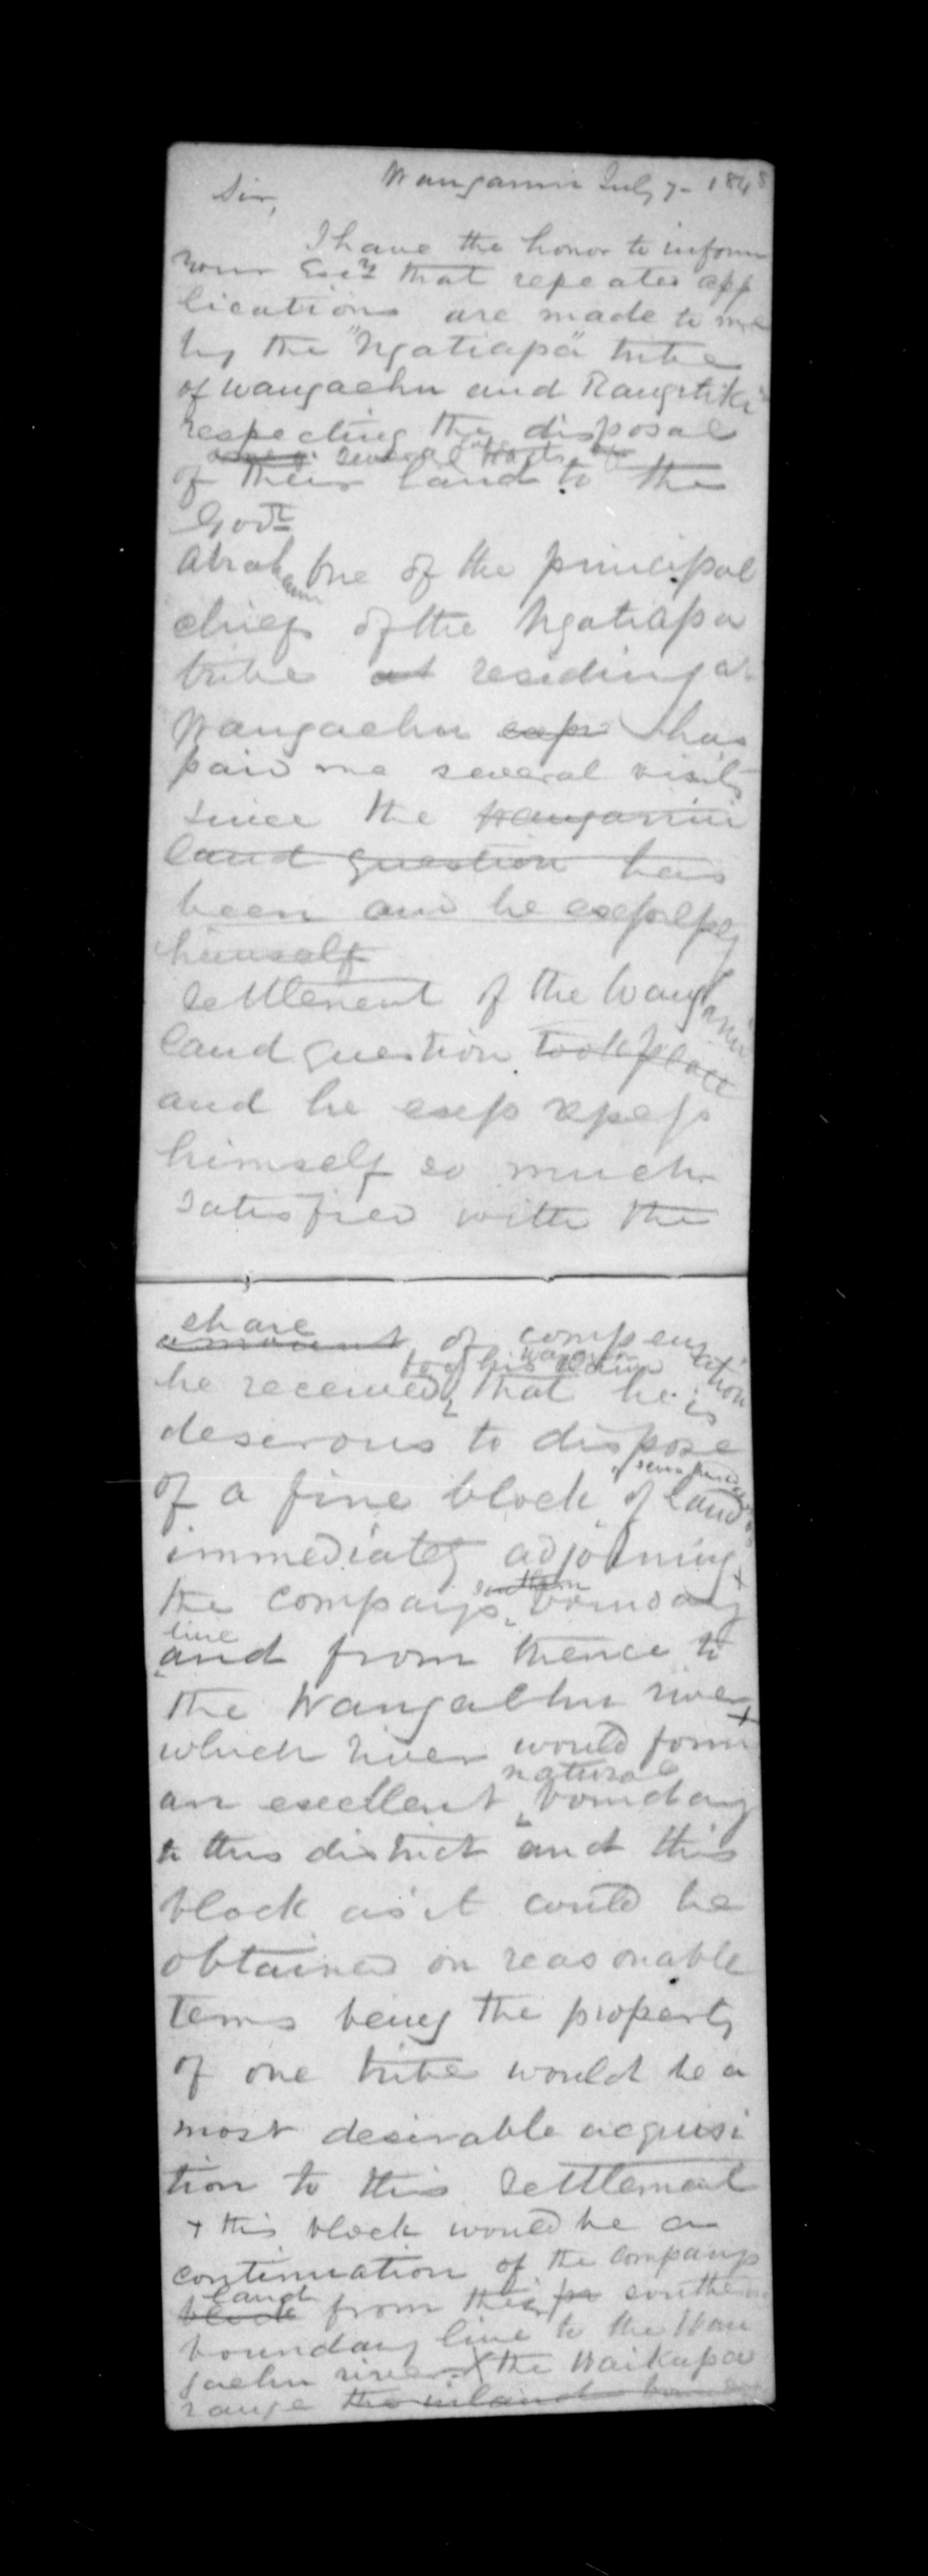 Wanganui July 7- 1848
Sir,
I have the honor to inform
your Excy that repeated app
lications are made to me
by the "Ngatiapa" tribe
of Wangaehu and Rangitiki
respecting the disposal
several tracts of
of their land to the
Govt
Abraham one of the principal
chiefs of the Ngatiapa
tribe at residing at
Wangaehu exp has
paid me several visits
since the Wanganui
land question has
been and he
himself
settlement of the Wanganui
land question took place
and he
himself so much
satisfied with the
share
amount of compensation
he received, that he is
deserous to dispose
of a fine block of land
immediately adjoining
southern
the companys boundary
line
and from thence to
the Wangaehu river +
which river would form
natural
an excellent boundary
to this district and this
block as it could be
obtained on reasonable
terms being the property
of one tribe would be a
most desirable acquisi
tion to this settlement
+ this block would be a
continuation of the companys
land
block from their southern
boundary line to the Wan
gaehu river X the Waikupa
range the inland